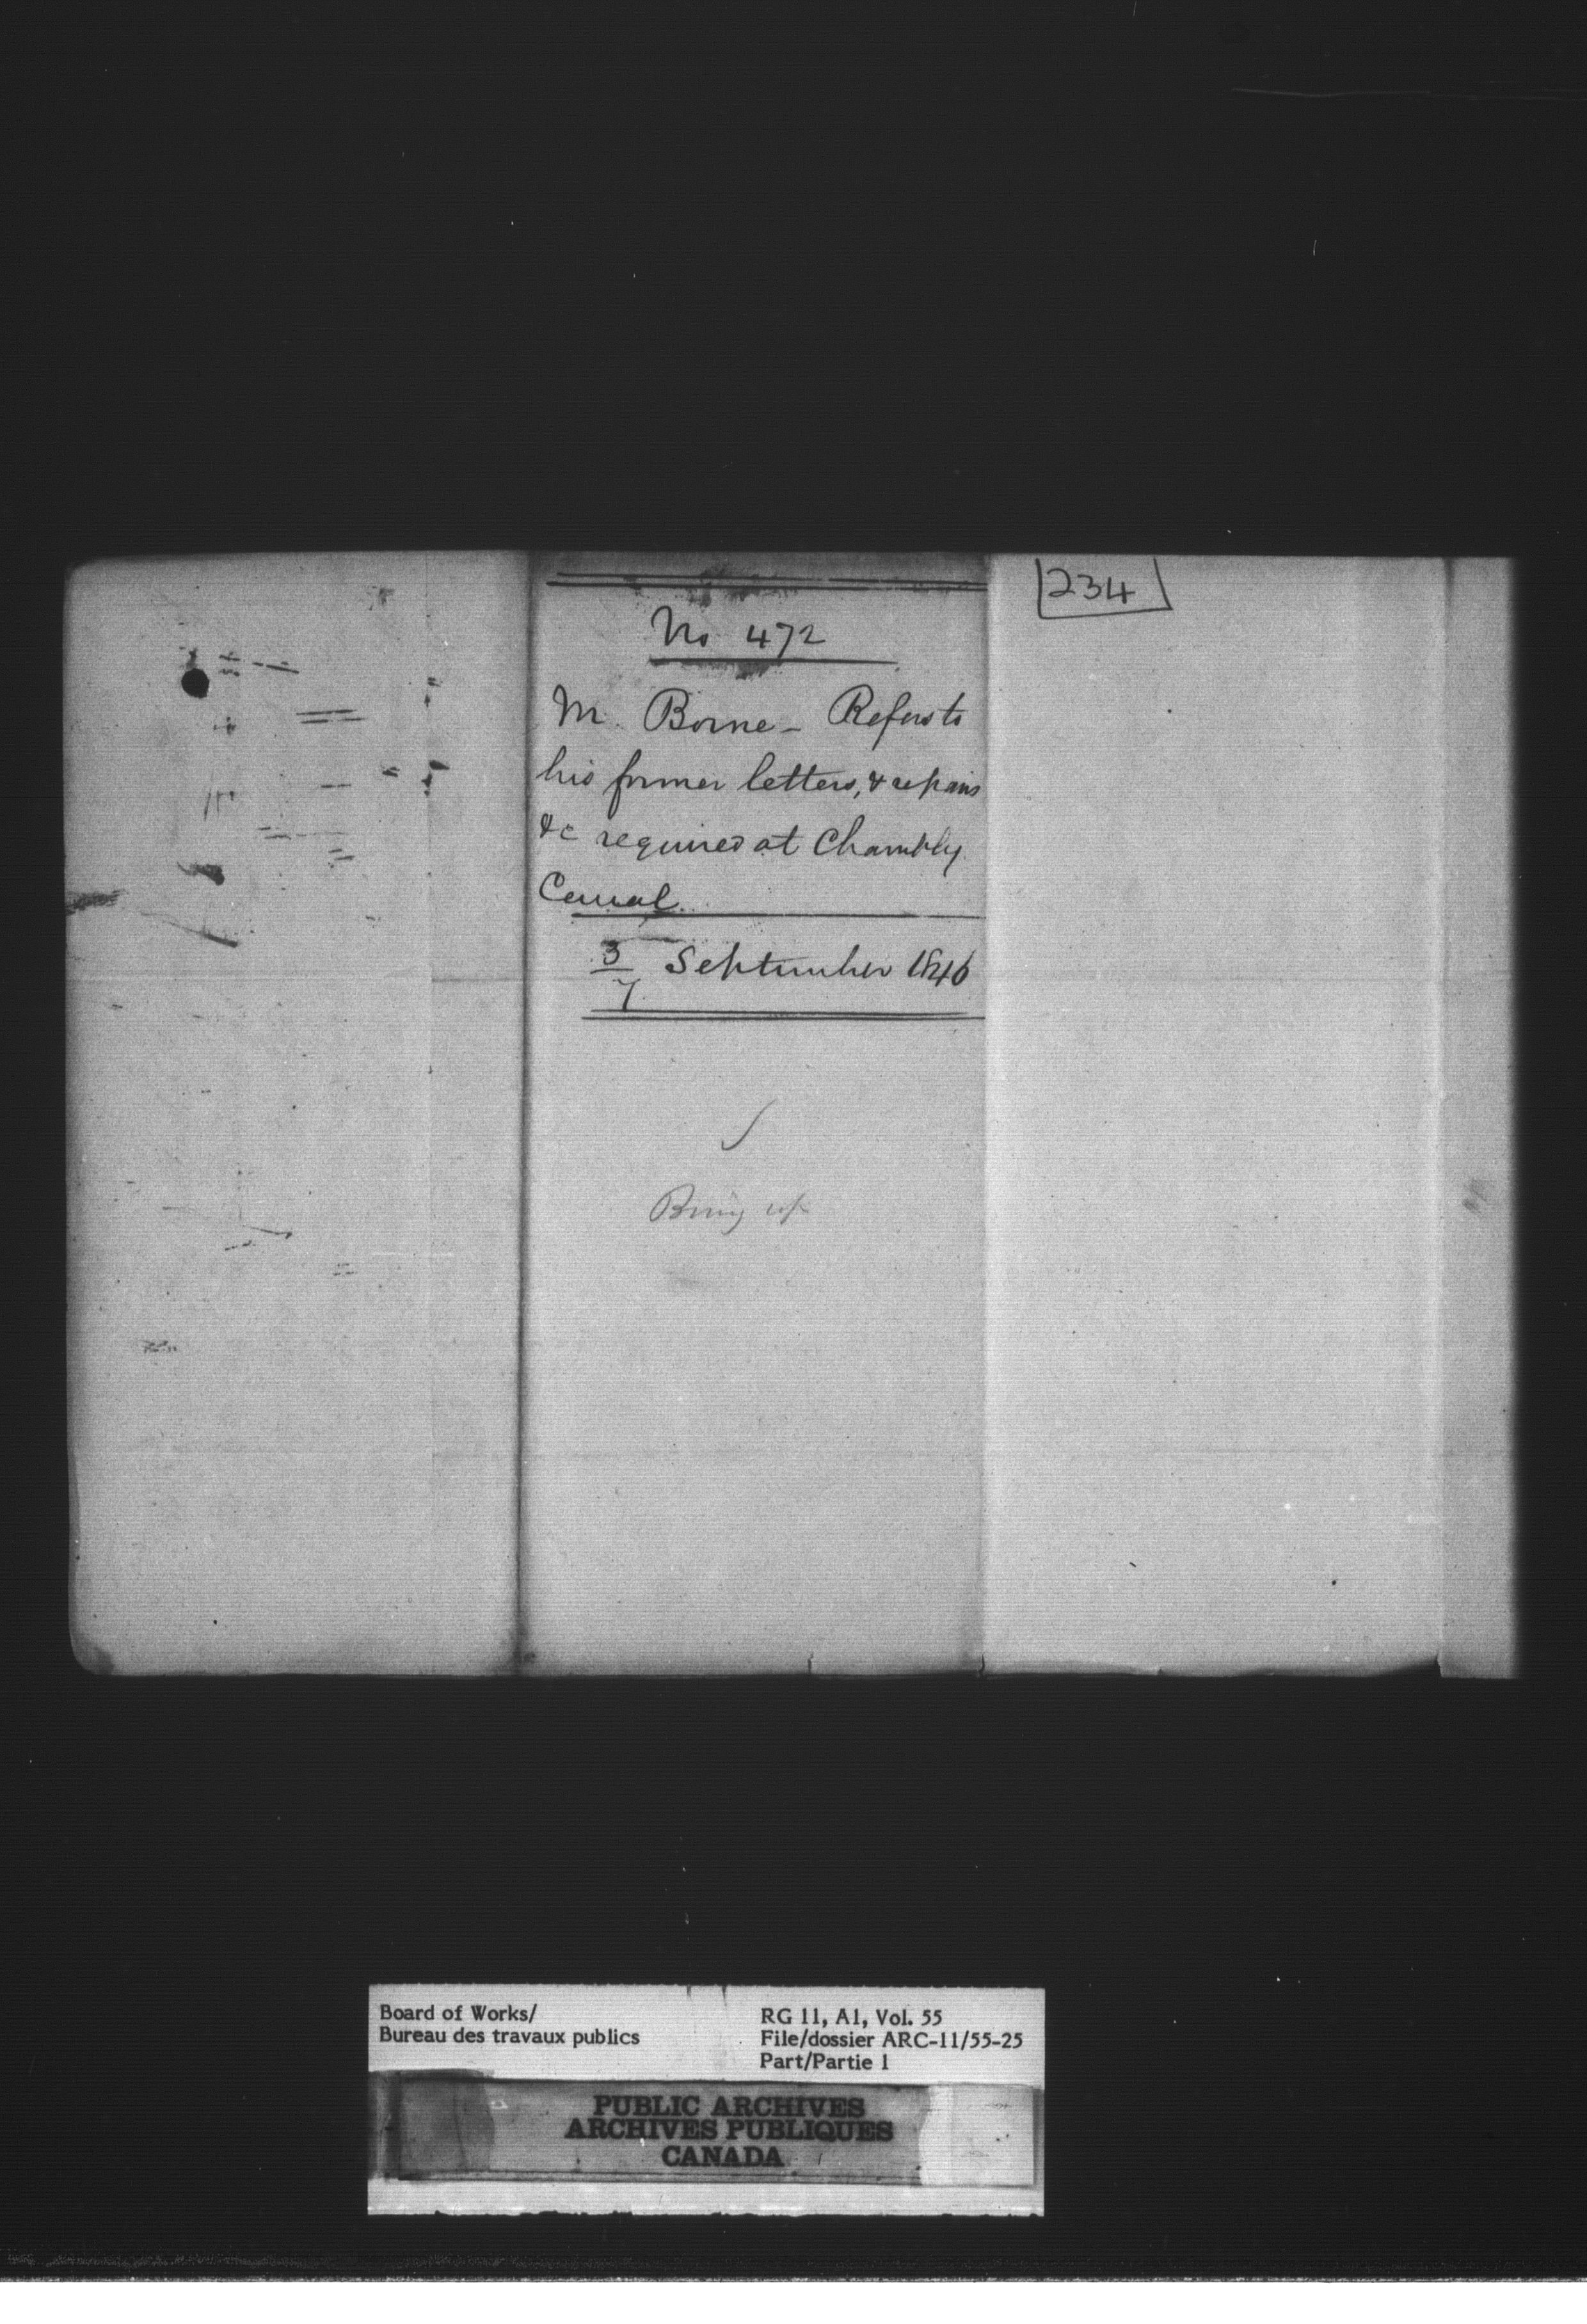 234
No 472
M. Borne - Refers to
his former letters, & repairs
&c required at Chambly
Canal.
3/7 September 1846
Bring up
Board of Works/
Bureau des travaux publics
RG 11, A1, Vol. 55
File/dossier ARC-11/55-25
Part/Partie 1
PUBLIC ARCHIVES
ARCHIVES PUBLIQUES
CANADA